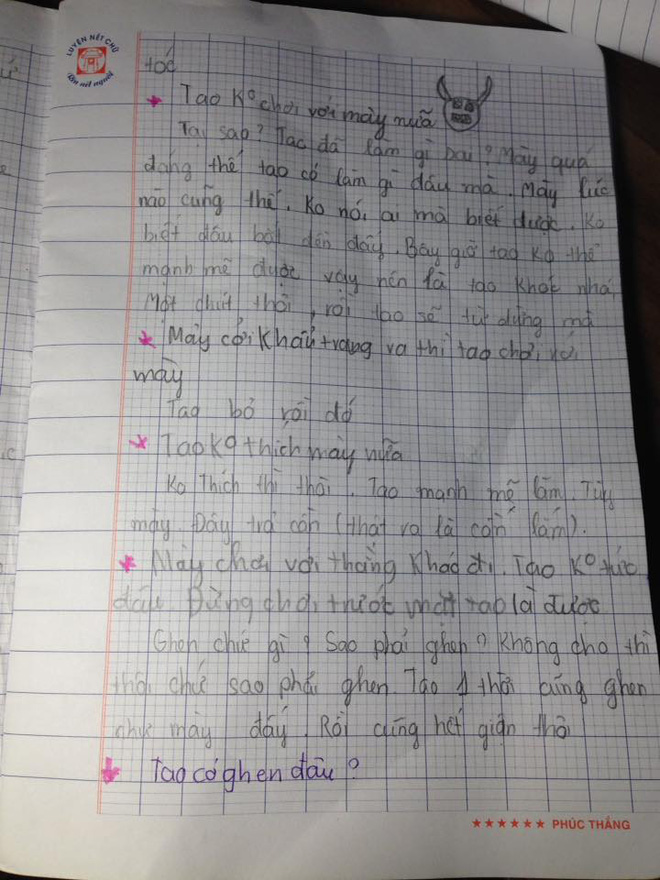 LUYỆN NÉT CHỮ
Rèn nết người
tóc
Tao Kº chơi với mày nữa
Tại sao? Tao đã làm gì sai? Mày quá
đáng thế tao có làm gì đâu mà. Mày lúc
nào cũng thế. Ko nói ai mà biết được. Ko
biết đâu bắt đền đấy. Bây giờ tao ko thể
mạnh mẽ được vậy nên là tao khóc nhá,
Một chút thôi, rồi tao sẽ tự đứng mà
Mày cởi khẩu trang ra thì tao chơi với
mày
Tao bỏ rồi đó
Tao Kº thích mày nữa
Ko Thích thì thôi. Tao mạnh mẽ lắm. Tùy
mày. Đấy trả cần (thật ra là cần lắm).
Mày chơi với thằng khác đi. Tao Kº tức
đâu. Đừng chơi trước mặt tao là được
Ghen chư gì? Sao phải ghen? Không cho thì
thôi chứ sao phải ghen. Tao 1 thời cũng ghen
như mày đấy. Rồi cũng hết giận thôi
Tao có ghen đâu?
PHÚC THẮNG